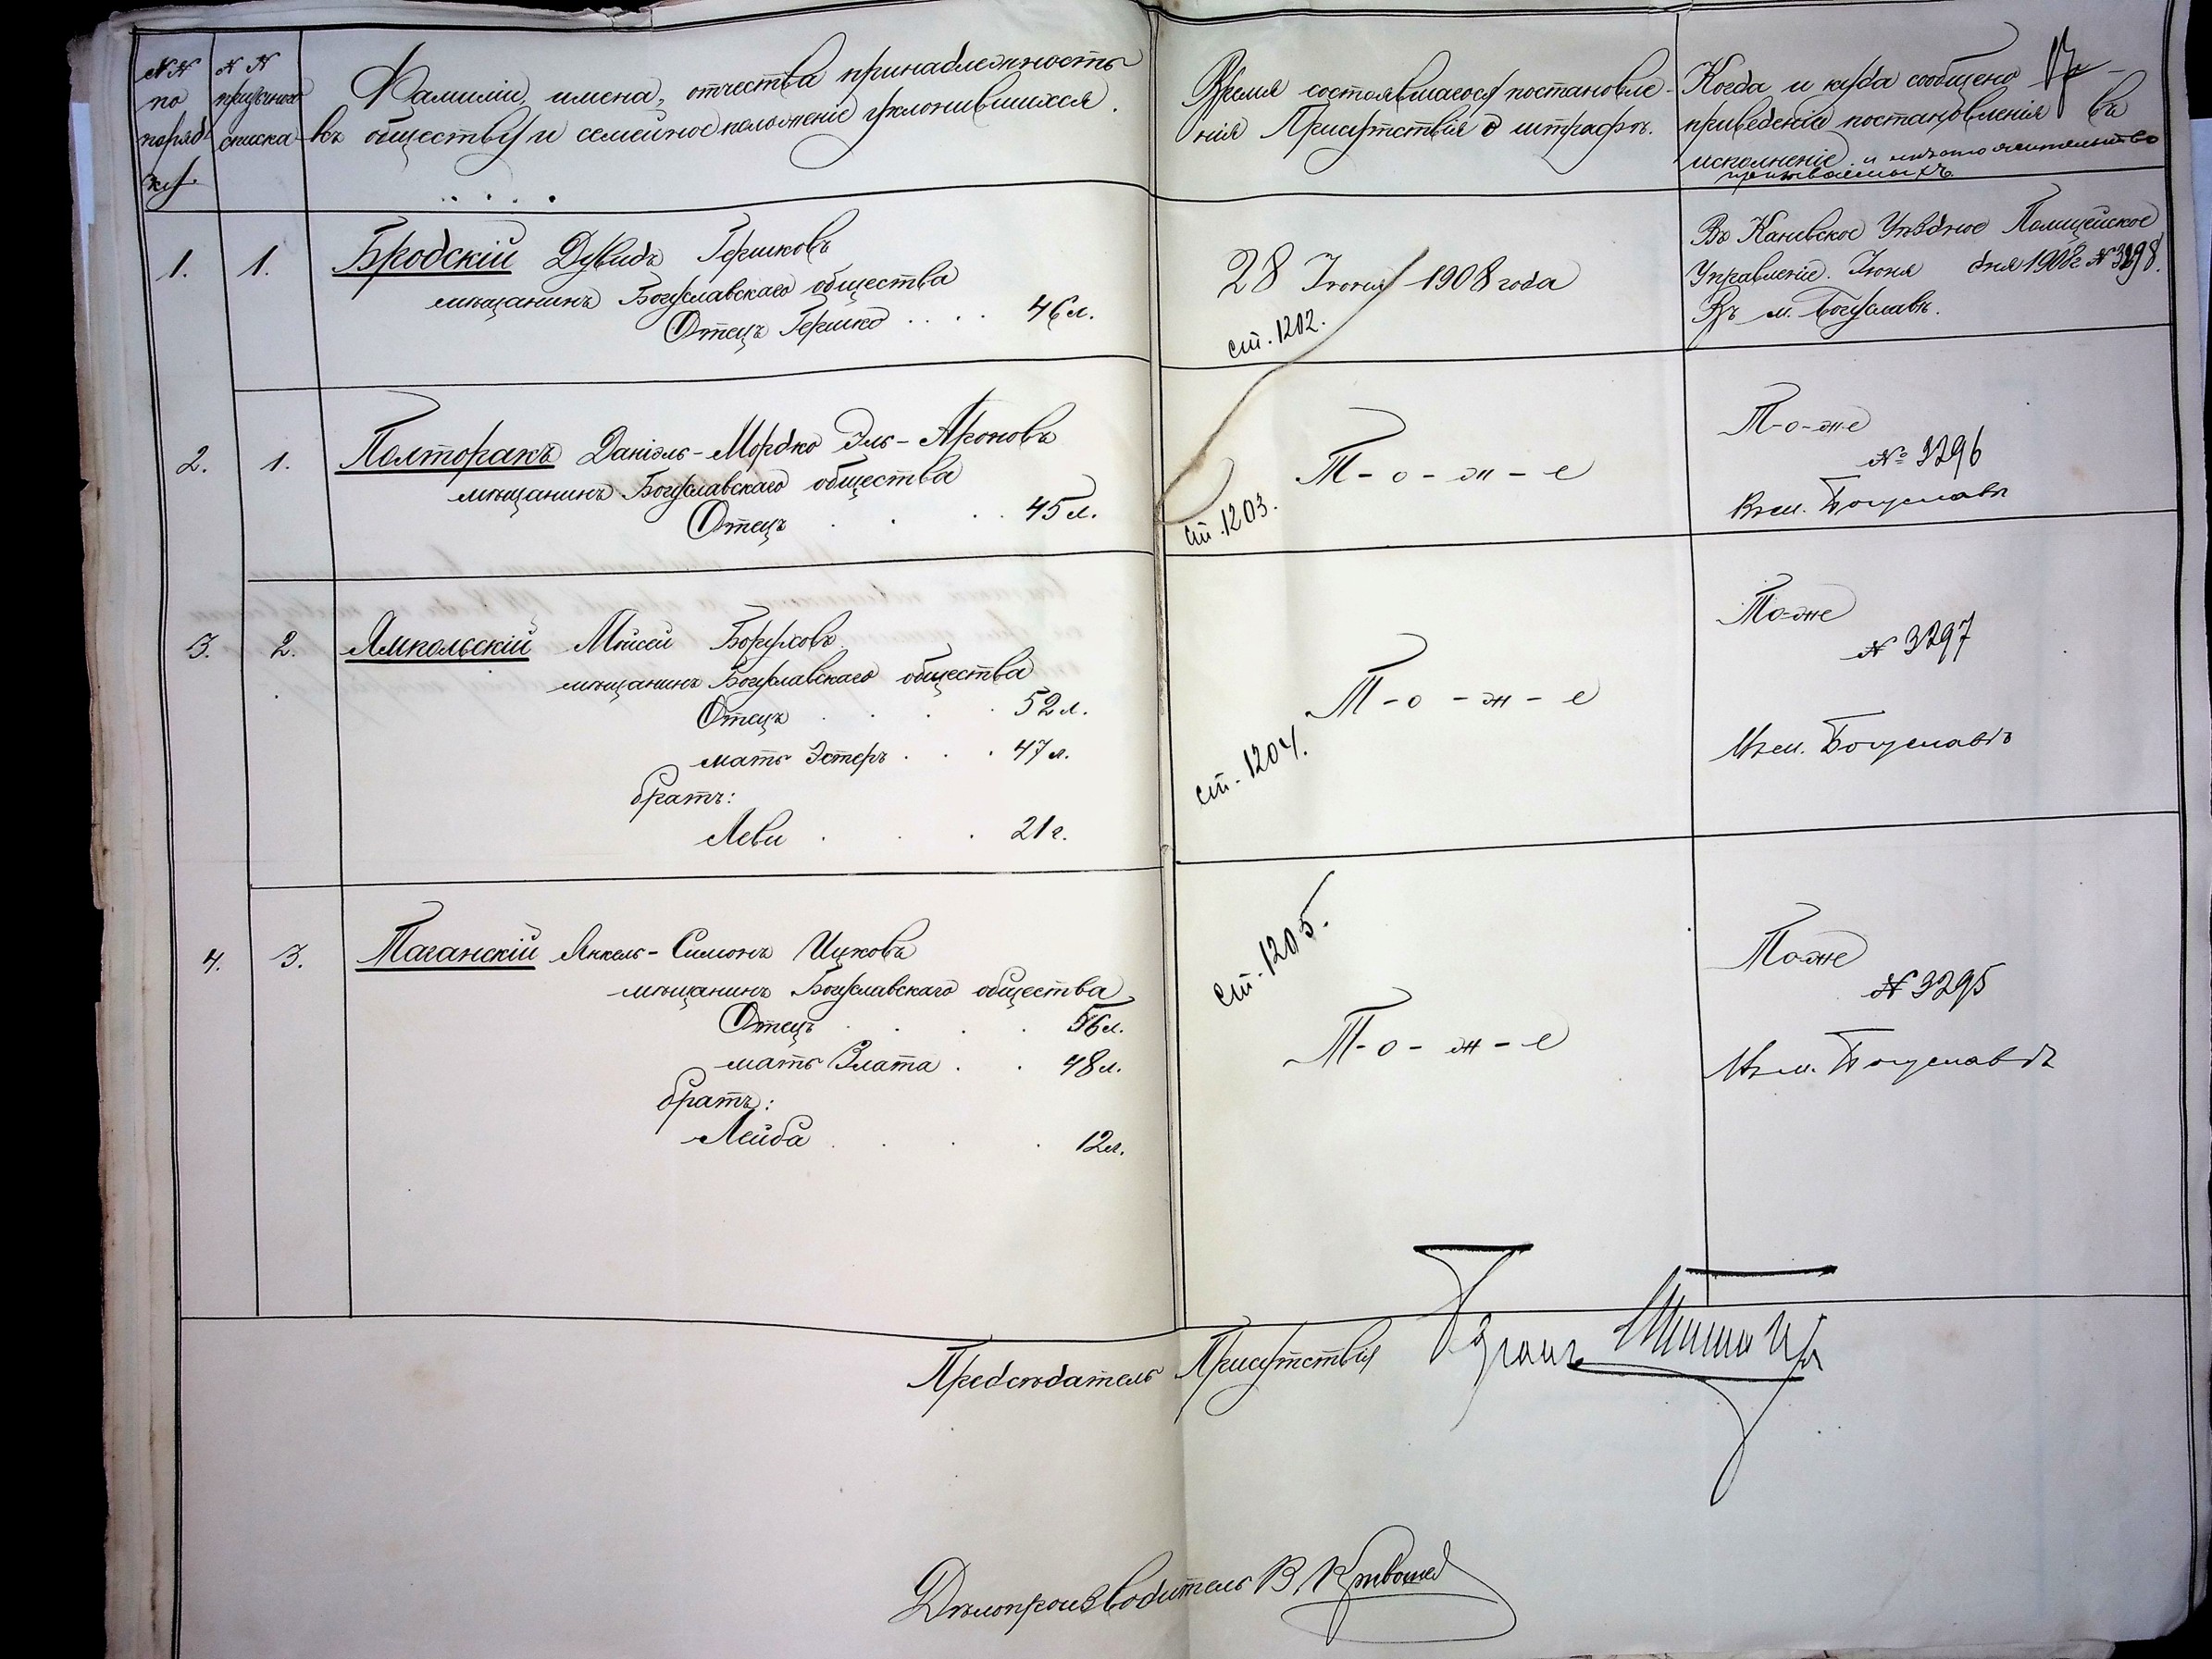 №№ по поряд-ку.
№№ призывного списка
Фамилiи, имена, отчества принадлежность
къ обществу и семейное положенiе уклонившихся.
Время состоявшагося постановле-
нiя Присутствiя о штрафѣ.
Когда и куда сообщено
приведенiе постановленiя въ
исполненiе и мѣсто жительство
призываемыхъ
1. 1. Бродскiй Дувидъ Гершковъ
мѣщанинъ Богуславскаго общества
Отецъ Гершко . . . . 46 л.
28 Iюня 1908 года
ст. 1202.
Въ Каневское Уѣздное Полицейское
Управленiе. Iюня дня 1908 г. № 3298.
Въ м. Богуславѣ.
2. 1. Полторакъ Данiэль-Мордко Эль-Ароновъ
мѣщанинъ Богуславскаго общества
Отецъ . . . . 45 л.
Т-о-ж-е
ст. 1203.
Т-о-же
№ 3296
Въ м. Богуславѣ
3. 2. Ямпольскiй Мойсей Боруховъ
мѣщанинъ Богуславскаго общества
Отецъ . . . . 52 л.
мать Эстеръ . . . 47 л.
братъ:
Леви . . . 21 г.
Т-о-ж-е
ст. 1204.
То-же
№ 3297
Въ м. Богуславѣ
4. 3. Таганскiй Янкель-Симонъ Ицковъ
мѣщанинъ Богуславскаго общества
Отецъ . . . . 56 л.
мать Злата . . 48 л.
братъ:
Лейба . . . . 12 л.
ст. 1205.
Т-о-ж-е
То-же
№ 3295
Въ м. Богуславѣ
Предсѣдатель Присутствiя
Дѣлопроизводитель В.